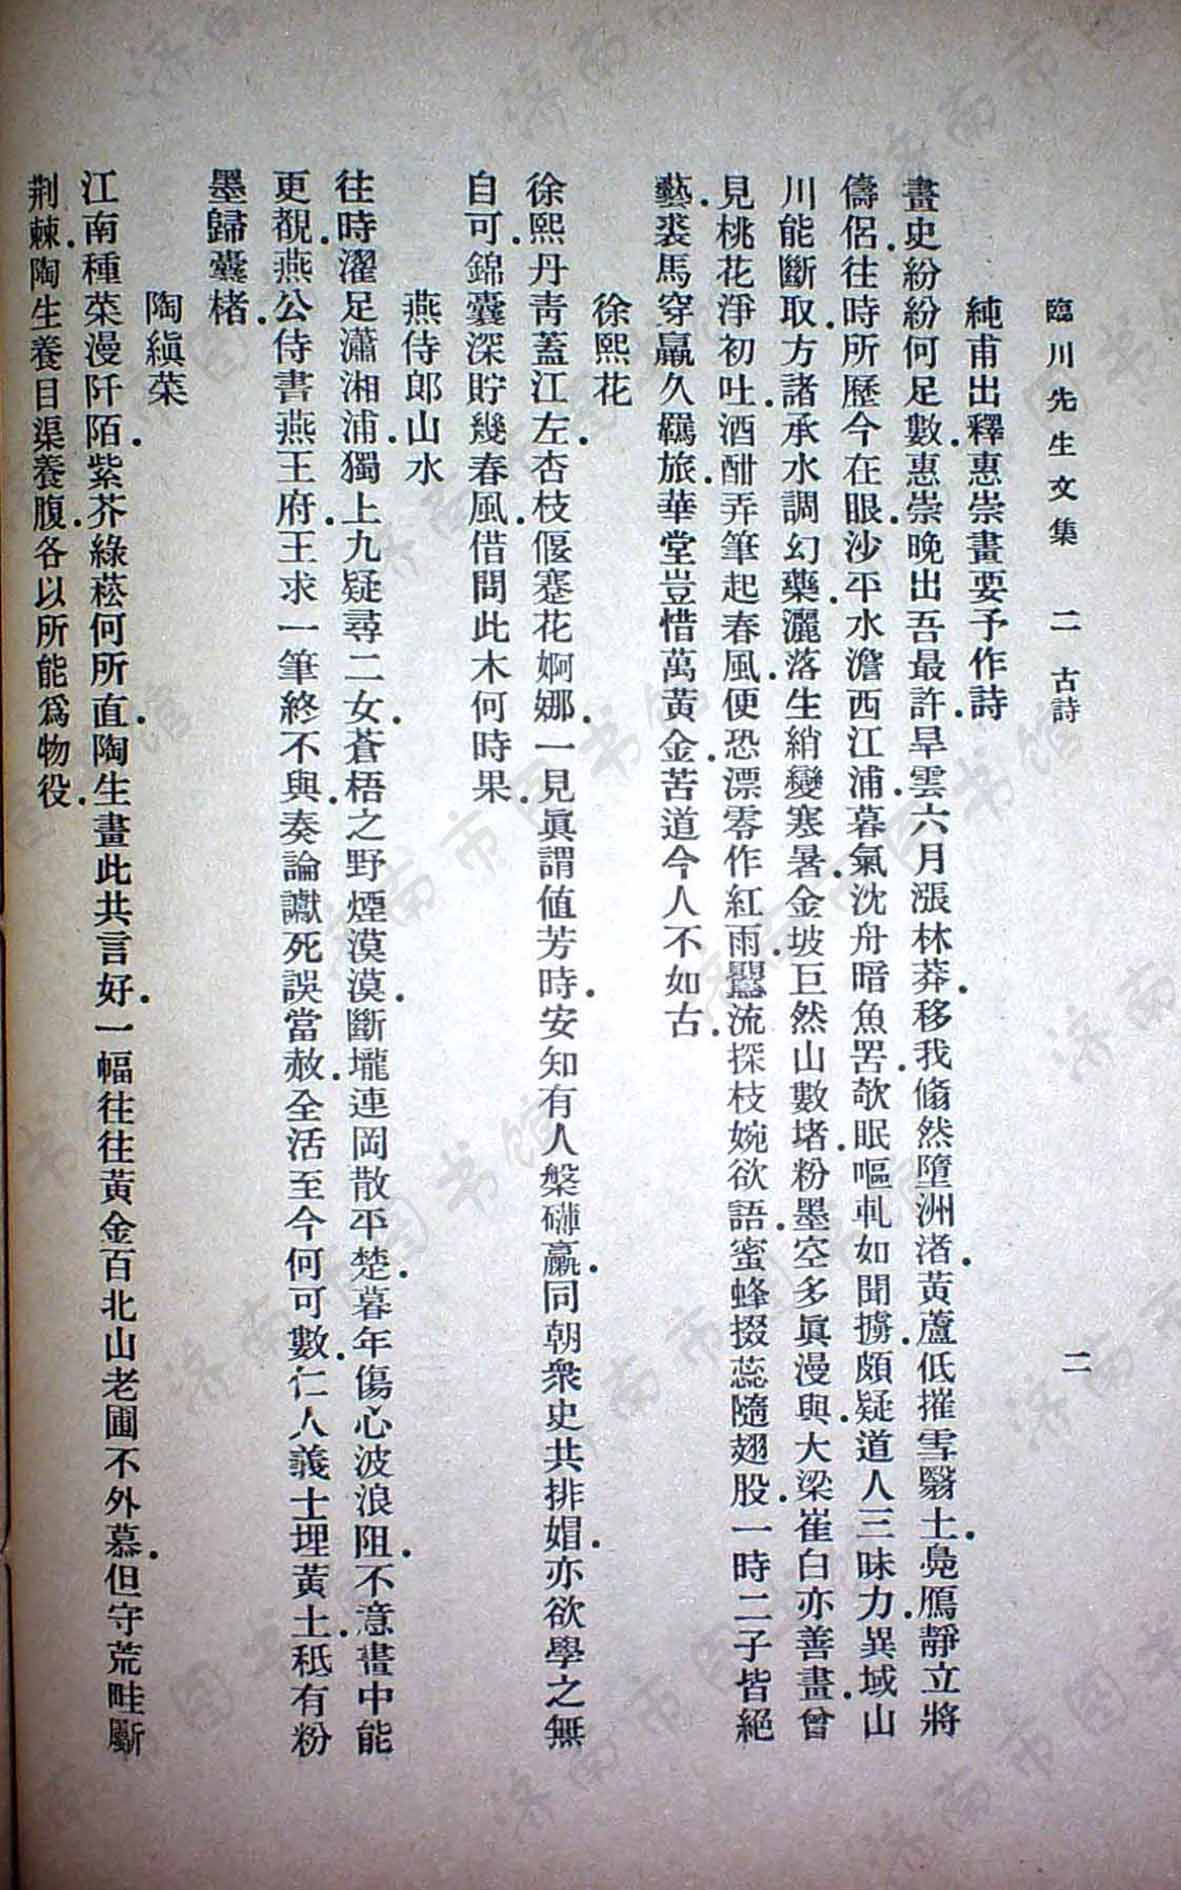 臨川先生文集　二　古詩　二
純甫出釋惠崇畫要予作詩
畫史紛紛何足數.惠崇晚出吾最許.旱雲六月漲林莽.移我翛然墮洲渚.黃蘆低摧雪翳土.鳧鴈靜立將
儔侶.往時所歷今在眼.沙平水澹西江浦.暮氣沈舟暗魚罟.欹眠嘔軋如聞擄.頗疑道人三昧力.異域山
川能斷取.方諸承水調幻藥.灑落生綃變寒暑.金坡巨然山數堵.粉墨空多眞漫與.大梁崔白亦善畫.曾
見桃花淨初吐.酒酣弄筆起春風.便恐漂零作紅雨.鸎流探枝婉欲語.蜜蜂掇蕊隨翅股.一時二子皆絕
藝.裘馬穿羸久羈旅.華堂豈惜萬黃金.苦道今人不如古.
徐熙花
徐熙丹靑蓋江左.杏枝偃蹇花婀娜.一見眞謂値芳時.安知有人槃礴臝.同朝衆史共排娼.亦欲學之無
自可.錦囊深貯幾春風.借問此木何時果.
燕侍郎山水
往時濯足瀟湘浦.獨上九疑尋二女.蒼梧之野煙漠漠.斷壠連岡散平楚.暮年傷心波浪阻.不意畫中能
更覩.燕公侍書燕王府.王求一筆終不與.奏論讞死誤當赦.全活至今何可數.仁人義士埋黃土.秖有粉
墨歸囊楮.
陶縝菜
江南種菜漫阡陌.紫芥綠菘何所直.陶生畫此共言好.一幅往往黃金百北山老圃不外慕.但守荒畦斸
荆棘.陶生養目渠養腹.各以所能爲物役.
濟南市图书馆